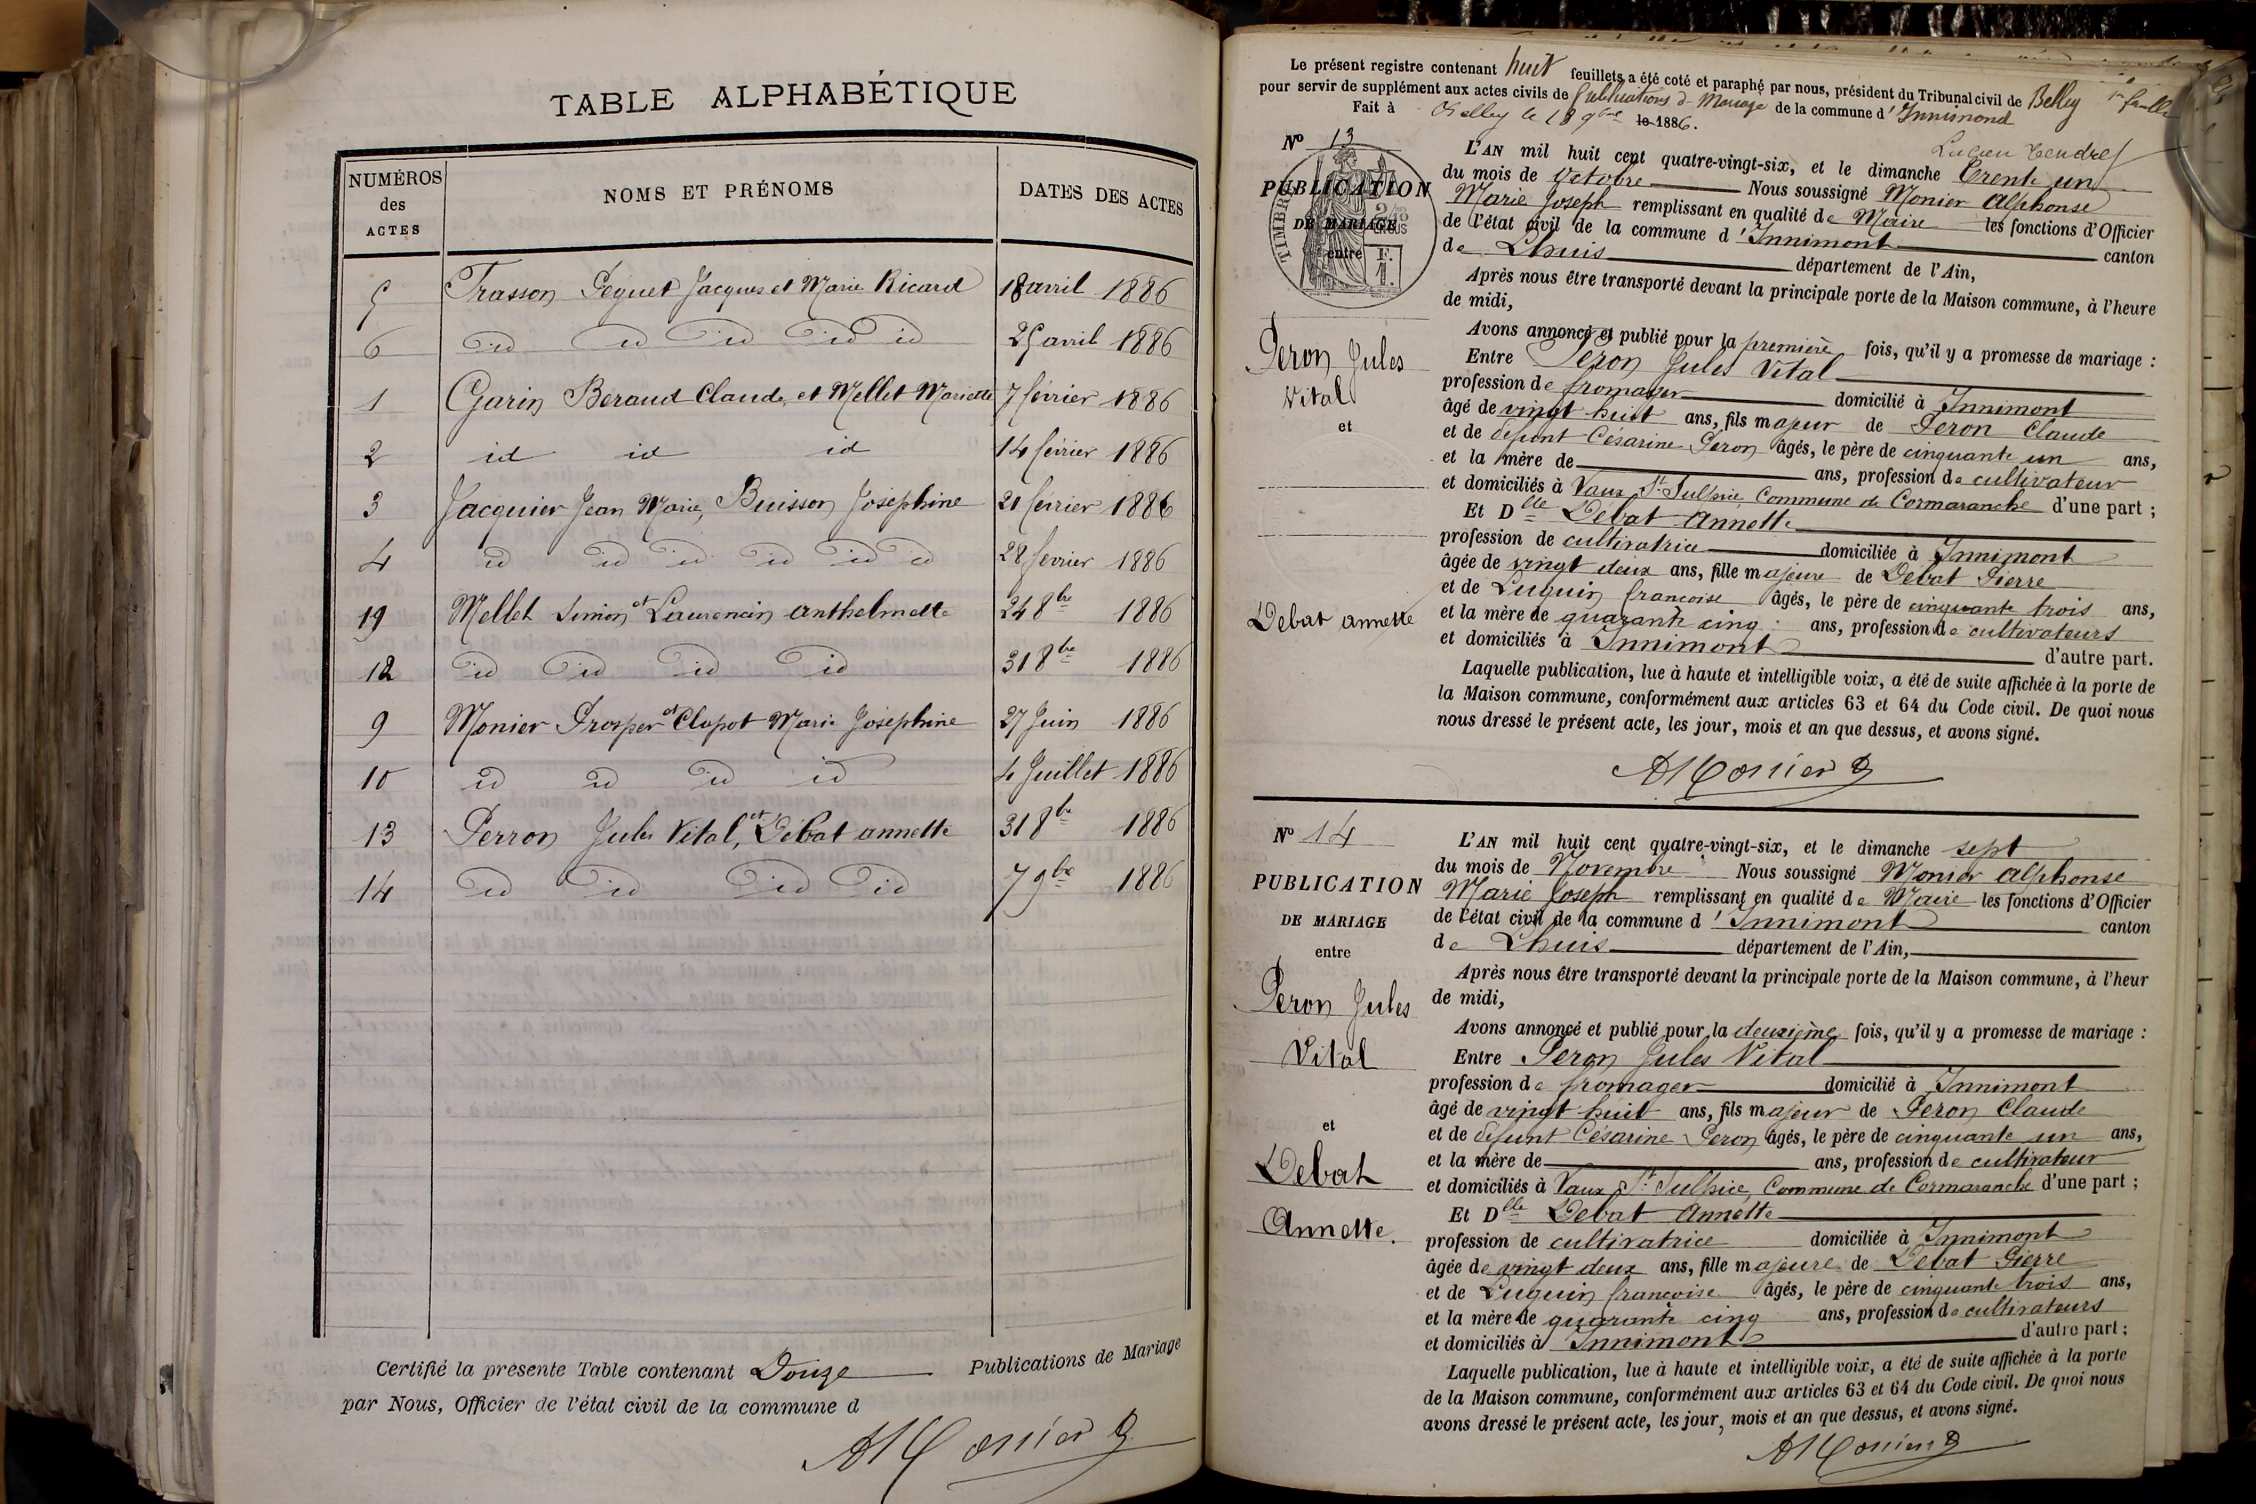 TABLE ALPHABÉTIQUE
NUMÉROS des ACTES
NOMS ET PRÉNOMS
DATES DES ACTES
5 Trasson Peguet Jacques et Marie Ricard 18 avril 1886
6 id id id id id 25 avril 1886
1 Garin Beraud Claude et Mellet Mariette 7 février 1886
2 id id id 14 février 1886
3 Jacquier Jean Marie, Buisson Joséphine 21 février 1886
4 id id id id id id 28 février 1886
19 Mellet Simon et Laurencin anthelmette 24 8bre 1886
12 id id id id 31 8bre 1886
9 Monier Prosper et Clapot Marie Joséphine 27 Juin 1886
10 id id id id 4 Juillet 1886
13 Perron Jules Vital, et Débat annette 31 8bre 1886
14 id id id id 7 9bre 1886
Certifié la présente Table contenant Douze Publications de Mariage
par Nous, Officier de l'état civil de la commune d
AMonier
Le présent registre contenant huit feuillets a été coté et paraphé par nous, président du Tribunal civil de Belley
pour servir de supplément aux actes civils de Publications de Mariage de la commune d'Innimond
Fait à Belley le 18 9bre le 1886.
1er feuillet
Lucien Tendret
No 13
PUBLICATION
DE MARIAGE
entre
TIMBRE
F.
1.
Peron Jules
Vital
et
Debat annette
L'AN mil huit cent quatre-vingt-six, et le dimanche Trente un
du mois de Octobre Nous soussigné Monier Alphonse
Marie Joseph remplissant en qualité de Maire les fonctions d'Officier
de l'état civil de la commune d'Innimont canton
de Lhuis département de l'Ain,
Après nous être transporté devant la principale porte de la Maison commune, à l'heure
de midi,
Avons annoncé et publié pour la première fois, qu'il y a promesse de mariage :
Entre Peron Jules Vital
profession de fromager domicilié à Innimont
âgé de vingt huit ans, fils majeur de Peron Claude
et de défunt Césarine Peron âgés, le père de cinquante un ans,
et la mère de ans, profession de cultivateur
et domiciliés à Vaux St Sulpice, Commune de Cormaranche d'une part ;
Et Dlle Debat Annette
profession de cultivatrice domiciliée à Innimont
âgée de vingt deux ans, fille majeure de Debat Pierre
et de Luquin francoise âgés, le père de cinquante trois ans,
et la mère de quarante cinq ans, profession de cultivateurs
et domiciliés à Innimont d'autre part.
Laquelle publication, lue à haute et intelligible voix, a été de suite affichée à la porte de
la Maison commune, conformément aux articles 63 et 64 du Code civil. De quoi nous
nous dressé le présent acte, les jour, mois et an que dessus, et avons signé.
AMonier
No 14
PUBLICATION
DE MARIAGE
entre
Peron Jules
Vital
et
Debat
Annette.
L'AN mil huit cent quatre-vingt-six, et le dimanche sept
du mois de Novembre Nous soussigné Monier Alphonse
Marie Joseph remplissant en qualité de Maire les fonctions d'Officier
de l'état civil de la commune d'Innimont canton
de Lhuis département de l'Ain,
Après nous être transporté devant la principale porte de la Maison commune, à l'heur
de midi,
Avons annoncé et publié pour la deuxième fois, qu'il y a promesse de mariage :
Entre Peron Jules Vital
profession de fromager domicilié à Innimont
âgé de vingt huit ans, fils majeur de Peron Claude
et de défunt Césarine Peron âgés, le père de cinquante un ans,
et la mère de ans, profession de cultivateur
et domiciliés à Vaux St Sulpice, Commune de Cormaranche d'une part ;
Et Dlle Debat Annette
profession de cultivatrice domiciliée à Innimont
âgée de vingt deux ans, fille majeure de Debat Pierre
et de Luquin francoise âgés, le père de cinquante trois ans,
et la mère de quarante cinq ans, profession de cultivateurs
et domiciliés à Innimont d'autre part ;
Laquelle publication, lue à haute et intelligible voix, a été de suite affichée à la porte
de la Maison commune, conformément aux articles 63 et 64 du Code civil. De quoi nous
avons dressé le présent acte, les jour, mois et an que dessus, et avons signé.
AMonier